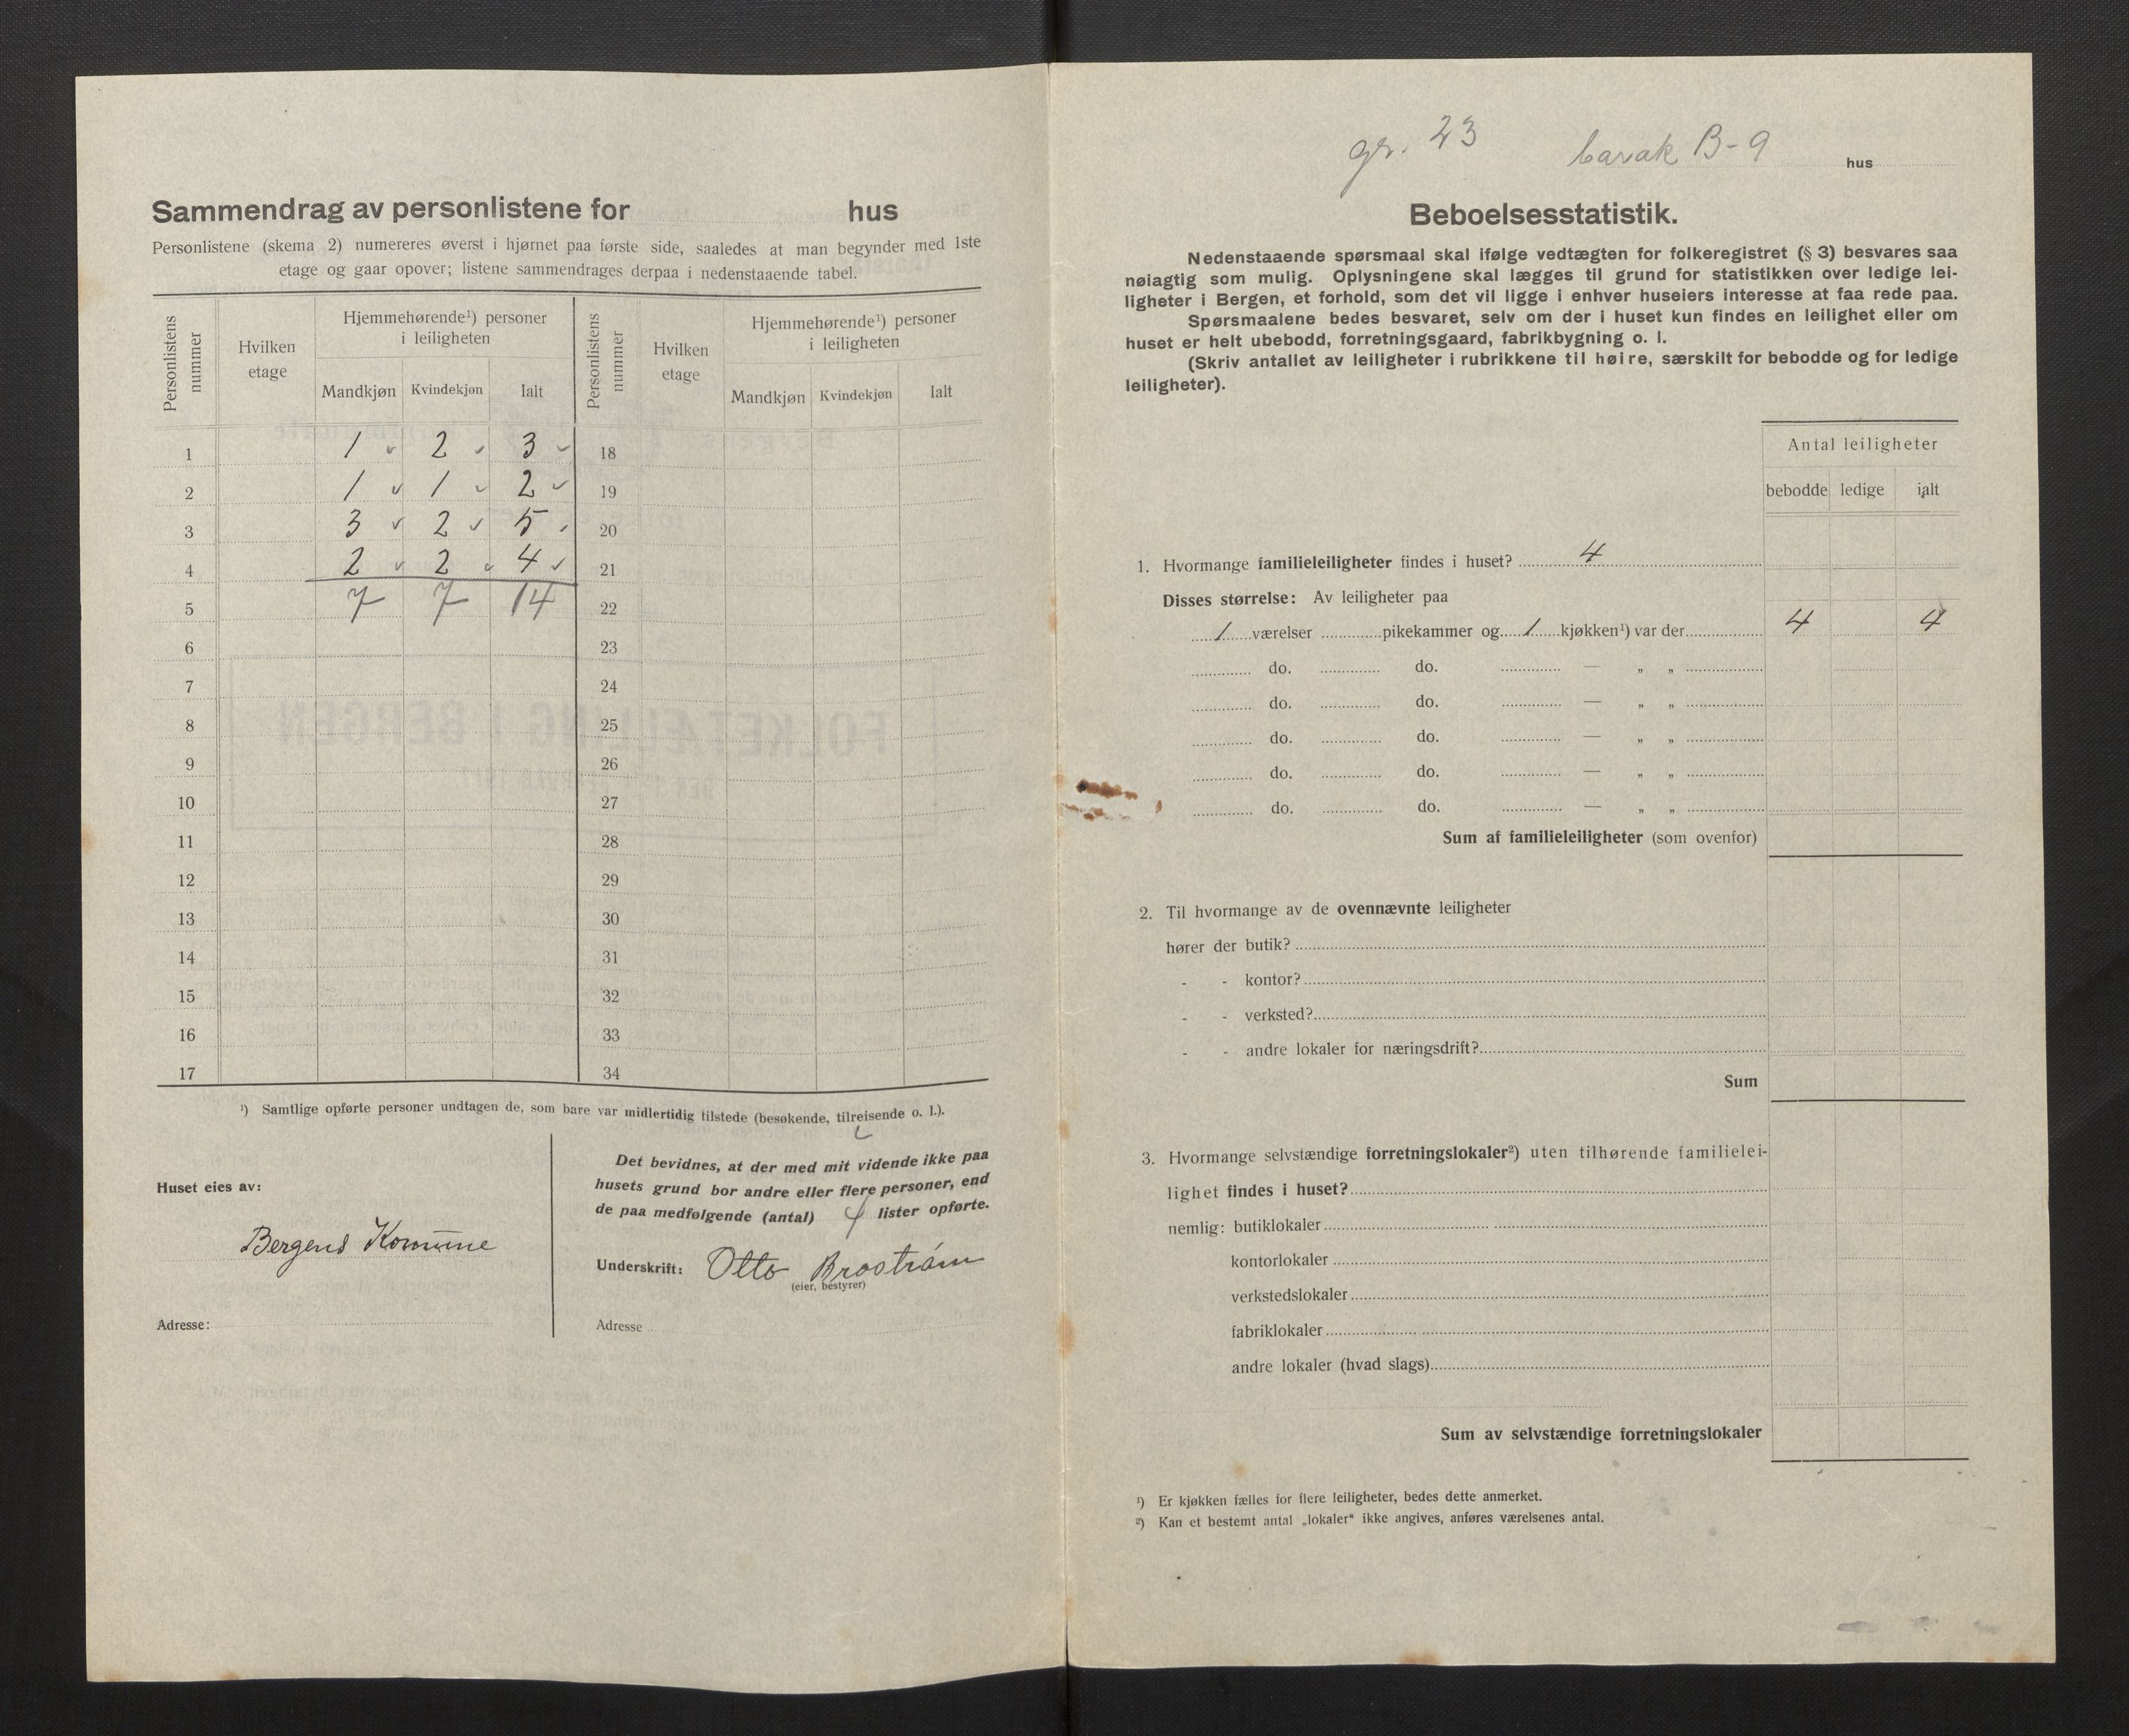 Sammendrag av personlistene for hus
Personlistene (skema 2) numereres øverst i hjørnet paa første side, saaledes at man begynder med 1ste
etage og gaar opover; listene sammendrages derpaa i nedenstaaende tabel.
Personlistens nummer
Hvilken etage
Hjemmehørende¹) personer i leiligheten
Mandkjøn Kvindekjøn Ialt
Personlistens nummer
Hvilken etage
Hjemmehørende¹) personer i leiligheten
Mandkjøn Kvindekjøn Ialt
1 1 2 3 18
2 1 1 2 19
3 3 2 5 20
4 2 2 4 21
5 7 7 14 22
6 23
7 24
8 25
9 26
10 27
11 28
12 29
13 30
14 31
15 32
16 33
17 34
¹) Samtlige opførte personer undtagen de, som bare var midlertidig tilstede (besøkende, tilreisende o. l.).
Huset eies av:
Bergens Kommune
Adresse:
Det bevidnes, at der med mit vidende ikke paa
husets grund bor andre eller flere personer, end
de paa medfølgende (antal) 4 lister opførte.
Underskrift: Otto Broström
(eier, bestyrer)
Adresse
gr. 23 barak B-9 hus
Beboelsesstatistik.
Nedenstaaende spørsmaal skal ifølge vedtægten for folkeregistret (§ 3) besvares saa
nøiagtig som mulig. Oplysningene skal lægges til grund for statistikken over ledige lei-
ligheter i Bergen, et forhold, som det vil ligge i enhver huseiers interesse at faa rede paa.
Spørsmaalene bedes besvaret, selv om der i huset kun findes en leilighet eller om
huset er helt ubebodd, forretningsgaard, fabrikbygning o. l.
(Skriv antallet av leiligheter i rubrikkene til høire, særskilt for bebodde og for ledige
leiligheter).
Antal leiligheter
bebodde ledige ialt
1. Hvormange familieleiligheter findes i huset? 4
Disses størrelse: Av leiligheter paa
1 værelser pikekammer og 1 kjøkken¹) var der 4 4
do. do. — „ „
do. do. — „ „
do. do. — „ „
do. do. — „ „
do. do. — „ „
Sum af familieleiligheter (som ovenfor)
2. Til hvormange av de ovennævnte leiligheter
hører der butik?
- - kontor?
- - verksted?
- - andre lokaler for næringsdrift?
Sum
3. Hvormange selvstændige forretningslokaler²) uten tilhørende familielei-
lighet findes i huset?
nemlig: butiklokaler
kontorlokaler
verkstedslokaler
fabriklokaler
andre lokaler (hvad slags)
Sum av selvstændige forretningslokaler
¹) Er kjøkken fælles for flere leiligheter, bedes dette anmerket.
²) Kan et bestemt antal „lokaler“ ikke angives, anføres værelsenes antal.